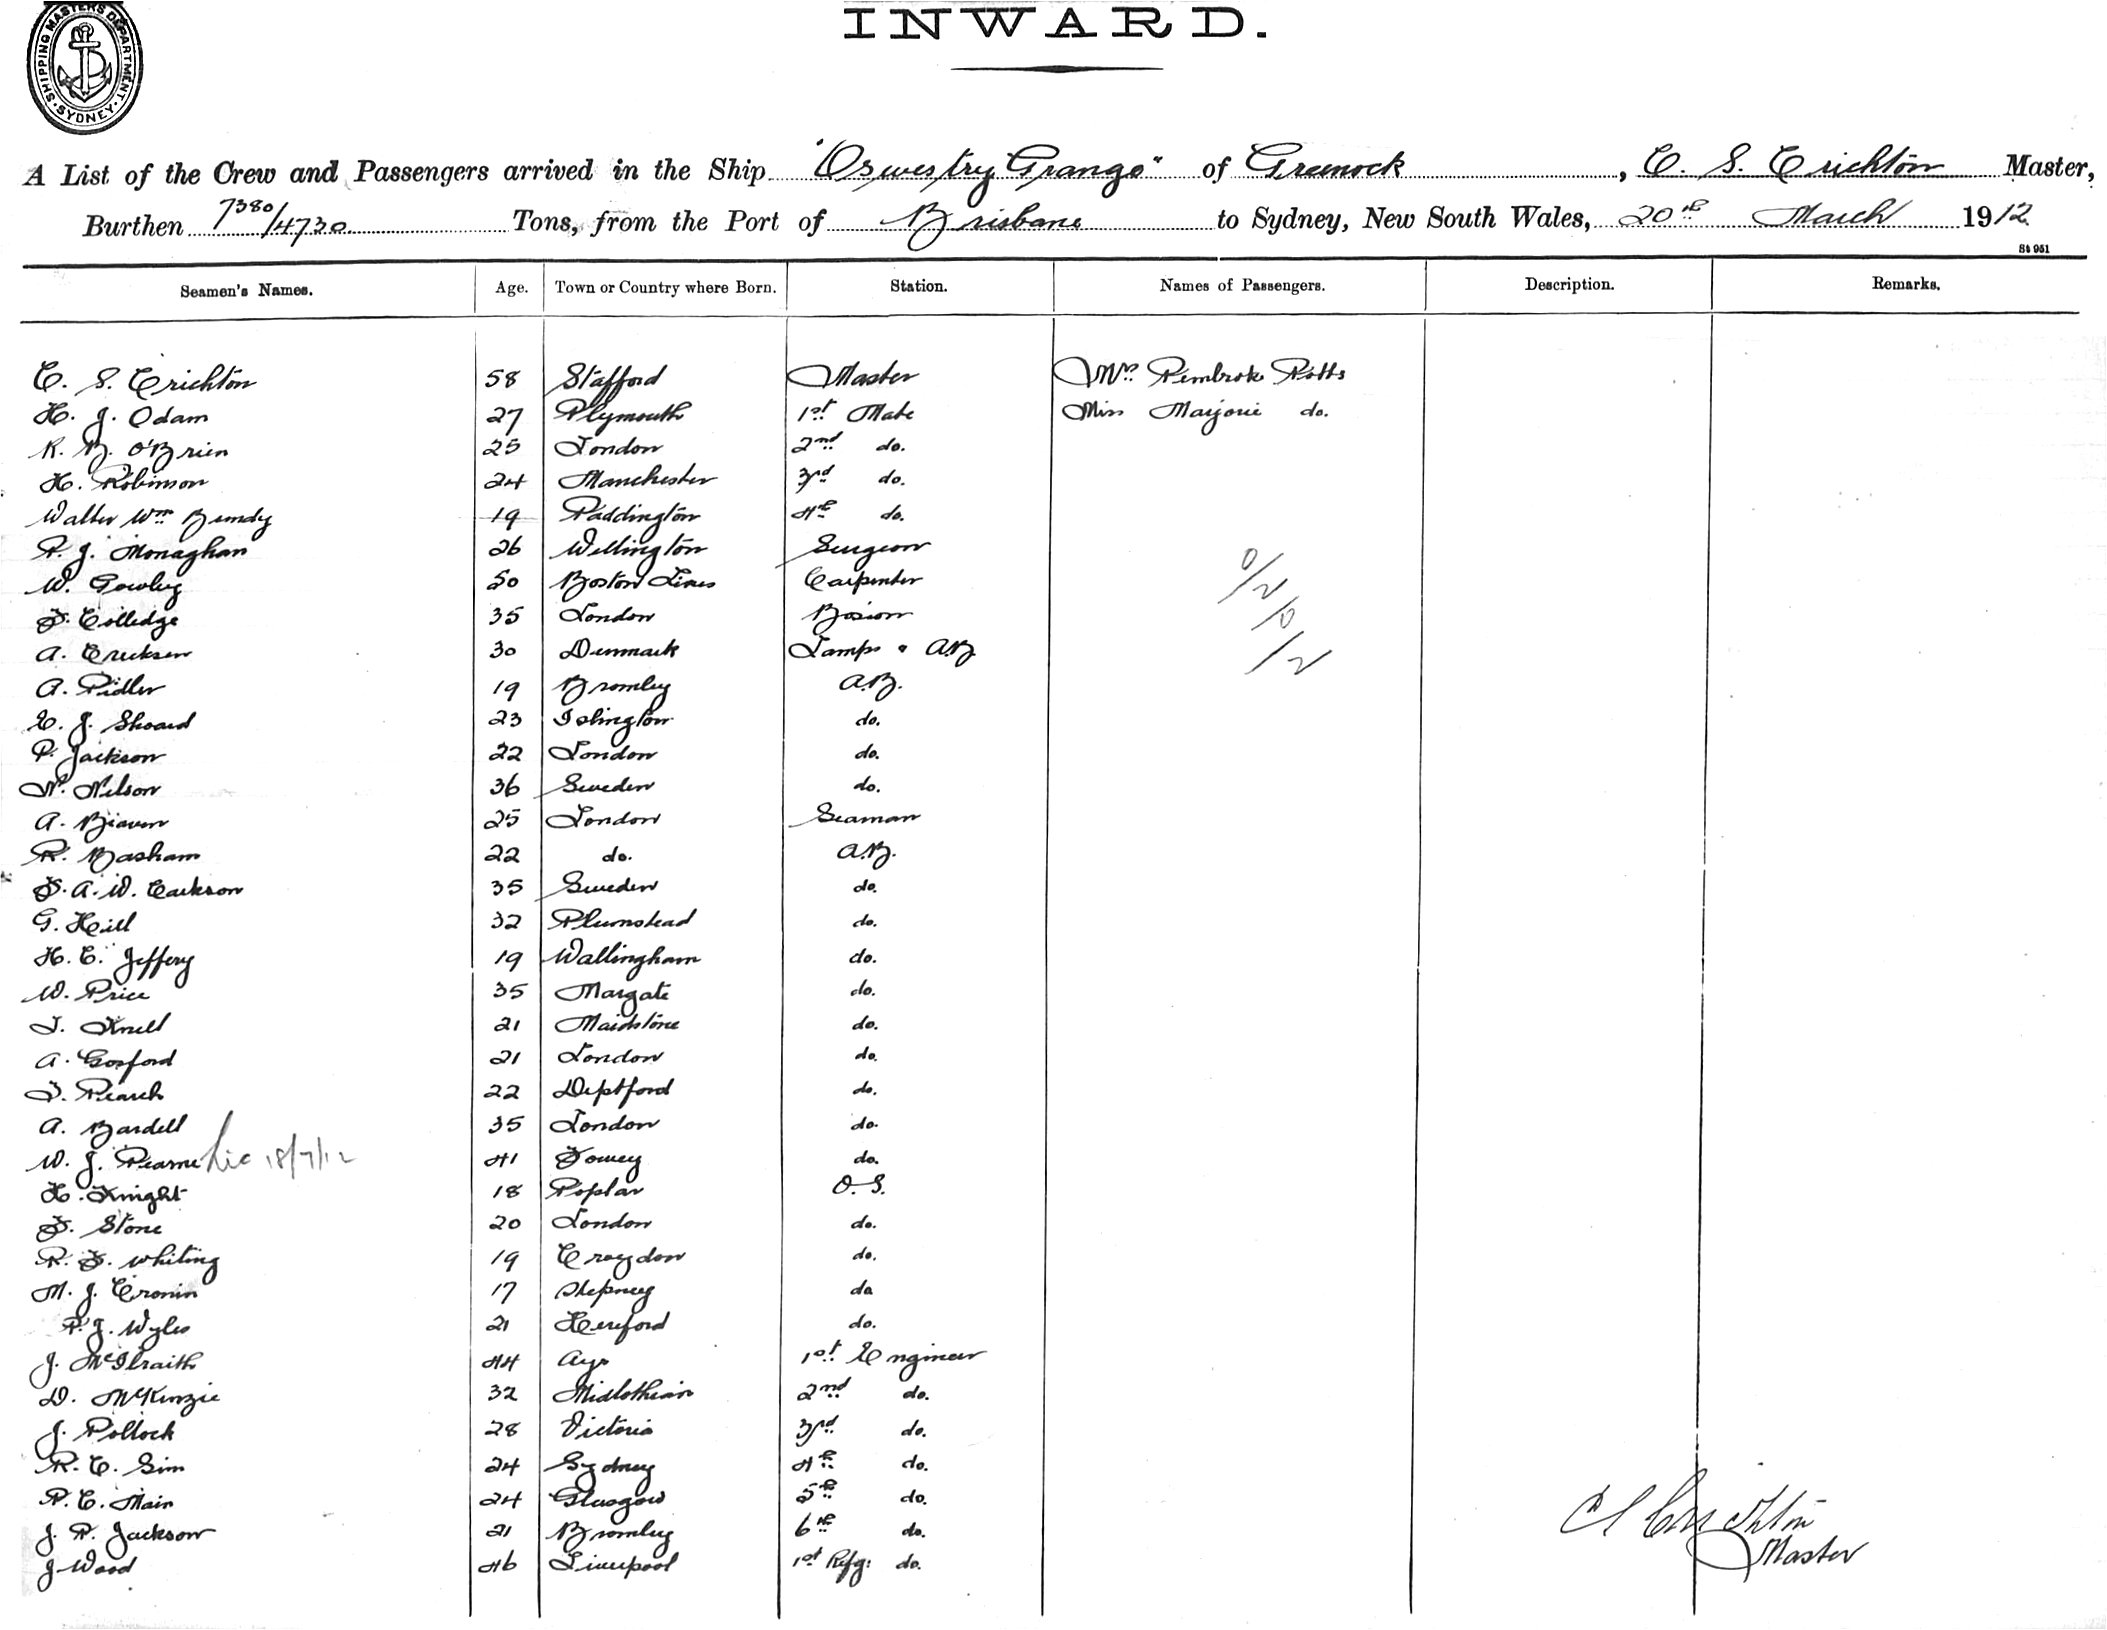 SHIPPING MASTERS DEPARTMENT
SYDNEY
INWARD.
A List of the Crew and Passengers arrived in the Ship "Oswestry Grange" of Greenock, C. S. Crichton Master,
Burthen 7380/4730 Tons, from the Port of Brisbane to Sydney, New South Wales, 20th March 1912
St 951
Seamen's Names. Age. Town or Country where Born. Station. Names of Passengers. Description. Remarks.
C. S. Crichton 58 Stafford Master Mrs Pembroke Potts
H. J. Odam 27 Plymouth 1st Mate Miss Marjorie do.
R. B. O'Brien 25 London 2nd do.
H. Robinson 24 Manchester 3rd do.
Walter Wm Bundy 19 Paddington 4th do.
P. J. Monaghan 26 Wellington Surgeon
W. Gowley 50 Boston Lines Carpenter
F. Colledge 35 London Bosion
A. Ericksen 30 Denmark Lamps & A.B.
A. Pidler 19 Bromley A.B.
E. J. Shoard 23 Islington do.
P. Jackson 22 London do.
N. Nelson 36 Sweden do.
A. Beaven 25 London Seaman
R. Basham 22 do. A.B.
F. A. W. Carlson 35 Sweden do.
G. Hill 32 Plumstead do.
H. C. Jeffery 19 Wallingham do.
W. Price 35 Margate do.
T. Knell 21 Maidstone do.
A. Gosford 21 London do.
T. Pearch 22 Deptford do.
A. Bardell 35 London do.
W. J. Pearne Lic 18/7/12 41 Fowey do.
H. Knight 18 Poplar O.S.
F. Stone 20 London do.
R. F. Whiting 19 Croydon do.
M. J. Cronin 17 Stepney do
P. J. Wyles 21 Hereford do.
J. McIlraith 44 Ayr 1st Engineer
D. McKenzie 32 Midlothian 2nd do.
J. Pollock 28 Victoria 3rd do.
R. C. Sim 24 Sydney 4th do.
P. C. Main 24 Glasgow 5th do.
J. P. Jackson 21 Bromley 6th do.
J Wood 46 Liverpool 1st Refg: do.
0/2/0/12
C S Crichton
Master